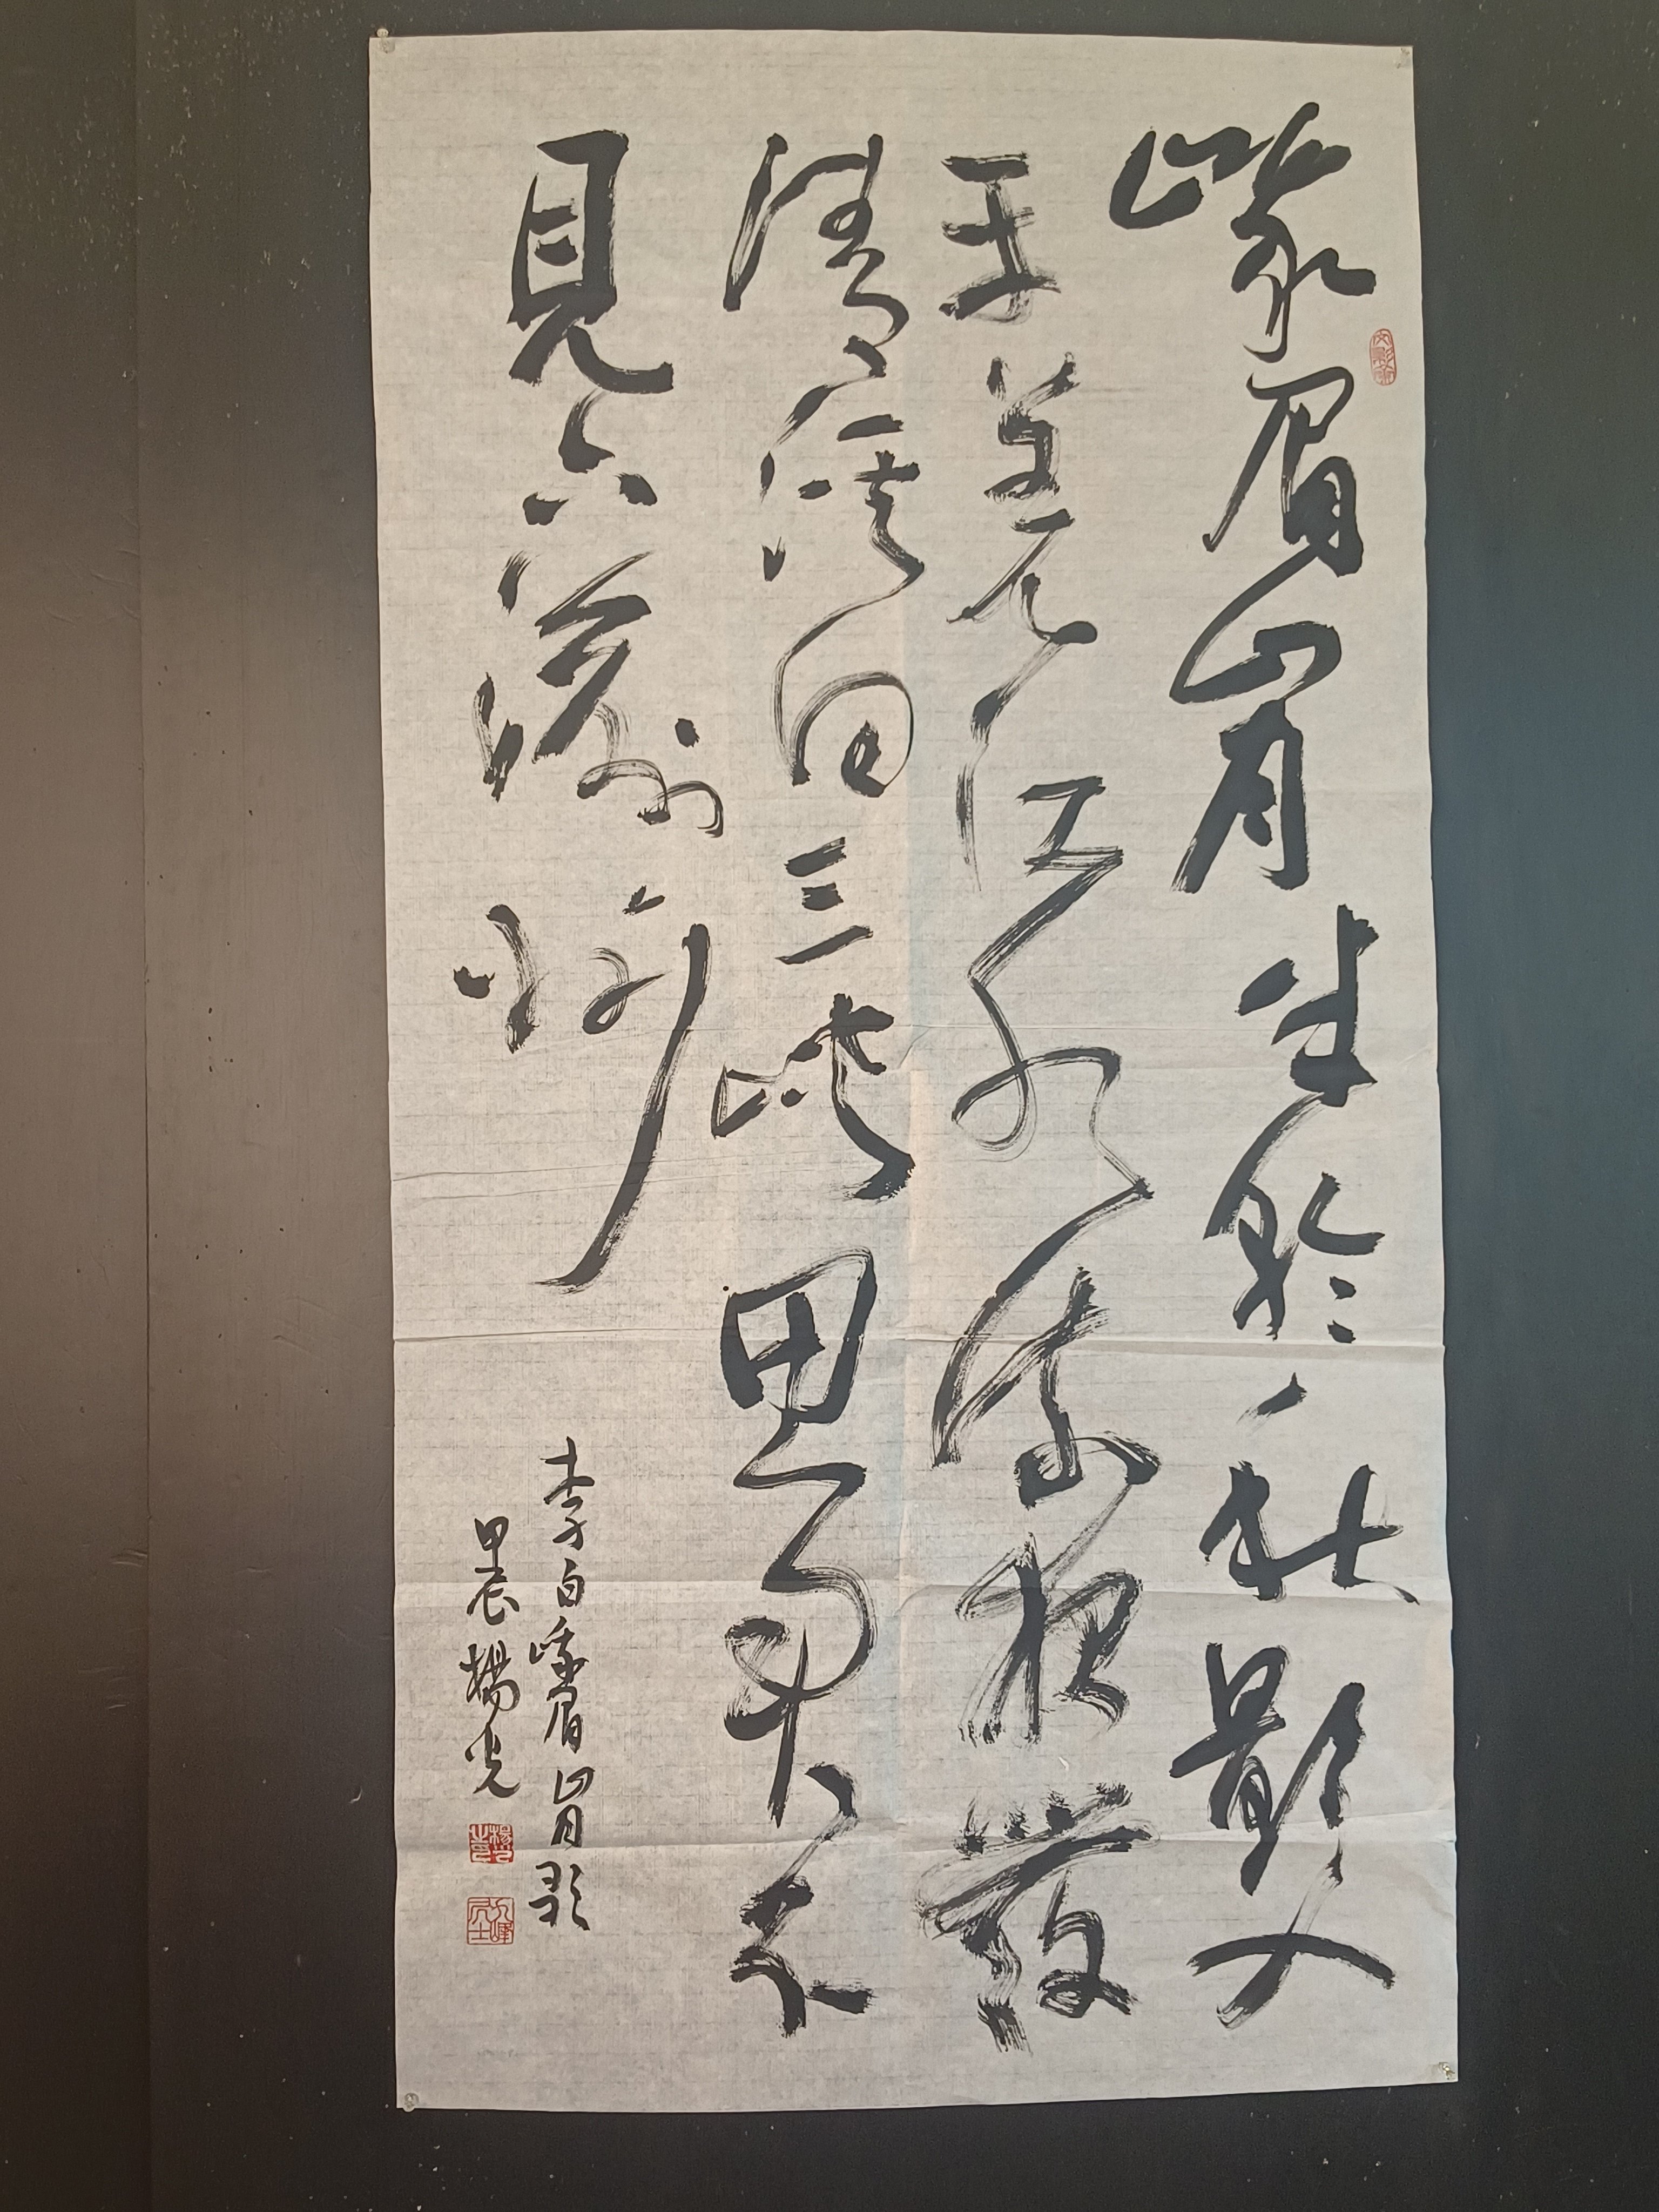 峨眉山月半輪秋影入
平羌江水流夜發
清溪向三峽思君不
見下渝州
李白峨眉山月歌
甲辰楊光
楊光之印
九峰居士